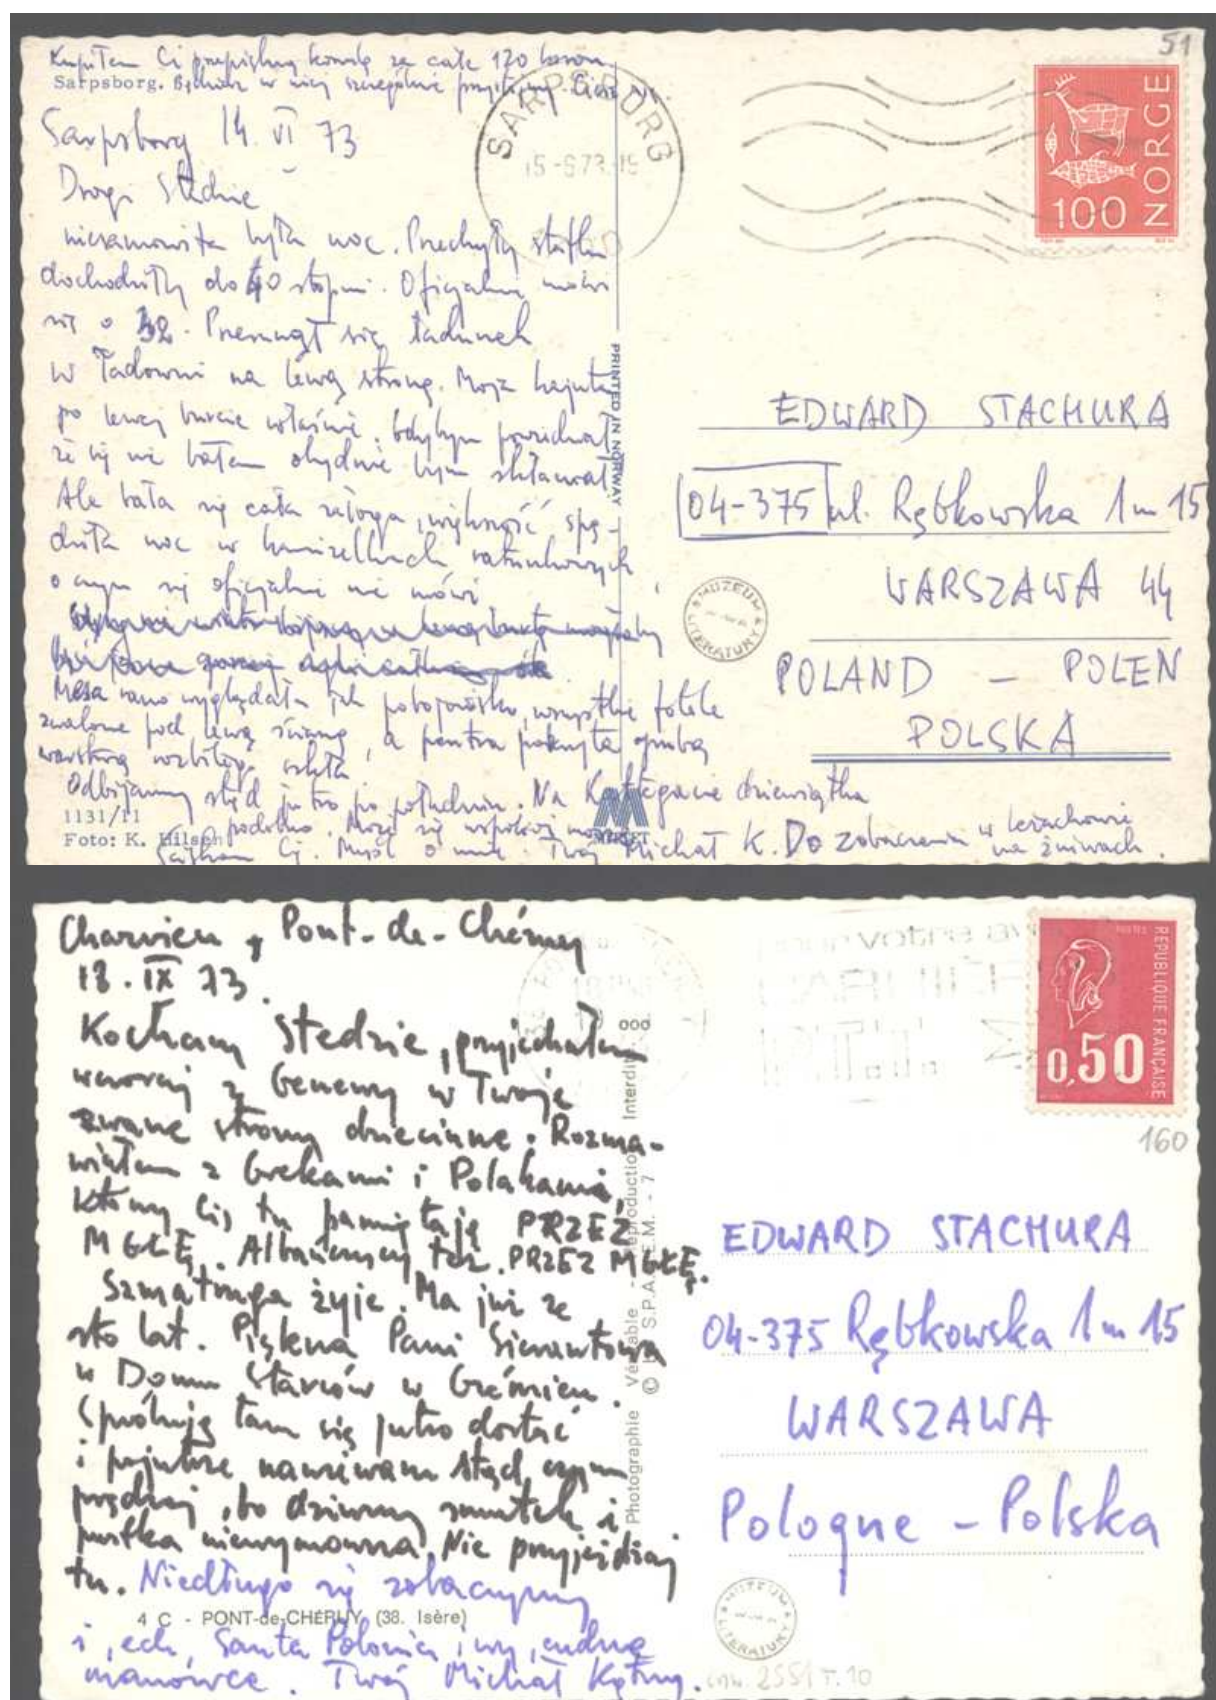 Kupiłem Ci przepiękną koszulę za całe 120 koron.
Sarpsborg. Będziesz w niej szczególnie przystojny.
51
Sarpsborg 14. VI 73
SARPSBORG
15-6.73.
NORGE
100
Drogi Stedzie
niesamowita była noc. Przechyły statku
dochodziły do 40 stopni. Oficjalnie mówi
się o 32. Przesunął się ładunek
w ładowni na lewą stronę. Moja kajuta
po lewej burcie właśnie. Gdybym powiedział
że się nie bałem ohydnie bym skłamał.
Ale bała się cała załoga, większość spę-
dziła noc w kamizelkach ratunkowych,
o czym się oficjalnie nie mówi.
Mesa rano wyglądała jak pobojowisko, wszystkie fotele
zwalone pod lewą ścianę, a pentra pokryta grubą
warstwą rozbitego szkła.
Odbijamy stąd jutro po południu. Na Kattegacie dziewiątka
podobno. Może się uspokoi morze.
Ściskam Cię. Myśl o mnie. Twój Michał K. Do zobaczenia w
na żniwach.
1131/11
Foto: K. Nilsen
PRINTED IN NORWAY
EDWARD STACHURA
04-375 ul. Rębkowska 1 m 15
WARSZAWA 44
POLAND – POLEN
POLSKA
MUZEUM LITERATURY
Charvieu, Pont-de-Chéruy
18. IX 73.
Kochany Stedzie, przyjechałem
wczoraj z Genewy w Twoje
zwane strony dziecinne. Rozma-
wiałem z Grekami i Polakami,
którzy Cię tu pamiętają PRZEZ
MGŁĘ. Albańczycy też. PRZEZ MGŁĘ.
Szmatruga żyje. Ma już ze
sto lat. Piękna Pani
w Domu Starców w Crémieu.
Spróbuję tam się jutro dostać
i pojutrze nawiewam stąd czym
prędzej, bo dziwny smutek i
pustka niewymowna. Nie przyjeżdżaj
tu. Niedługo się zobaczymy
4 C - PONT-de-CHÉRUY (38. Isère)
i, ech, Santa Polonia i my, cudne
manowce. Twój Michał
Photographie Véritable - Reproduction Interdite
© S.P.A.D.E.M. - 7
votre
REPUBLIQUE FRANÇAISE
POSTES
0,50
160
EDWARD STACHURA
04-375 Rębkowska 1 m 15
WARSZAWA
Pologne – Polska
MUZEUM LITERATURY
inw. 2551 T. 10